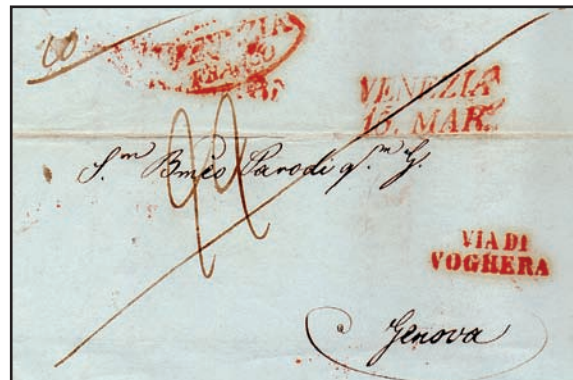 20
VENEZIA
FRANCO
VENEZIA
15. MAR.
S.m Bmeo Parodi q.m G.
VIA DI
VOGHERA
Genova